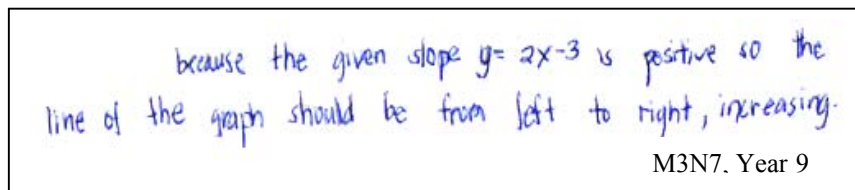 because the given slope y= 2x-3 is positive so the
line of the graph should be from left to right, increasing.
M3N7, Year 9